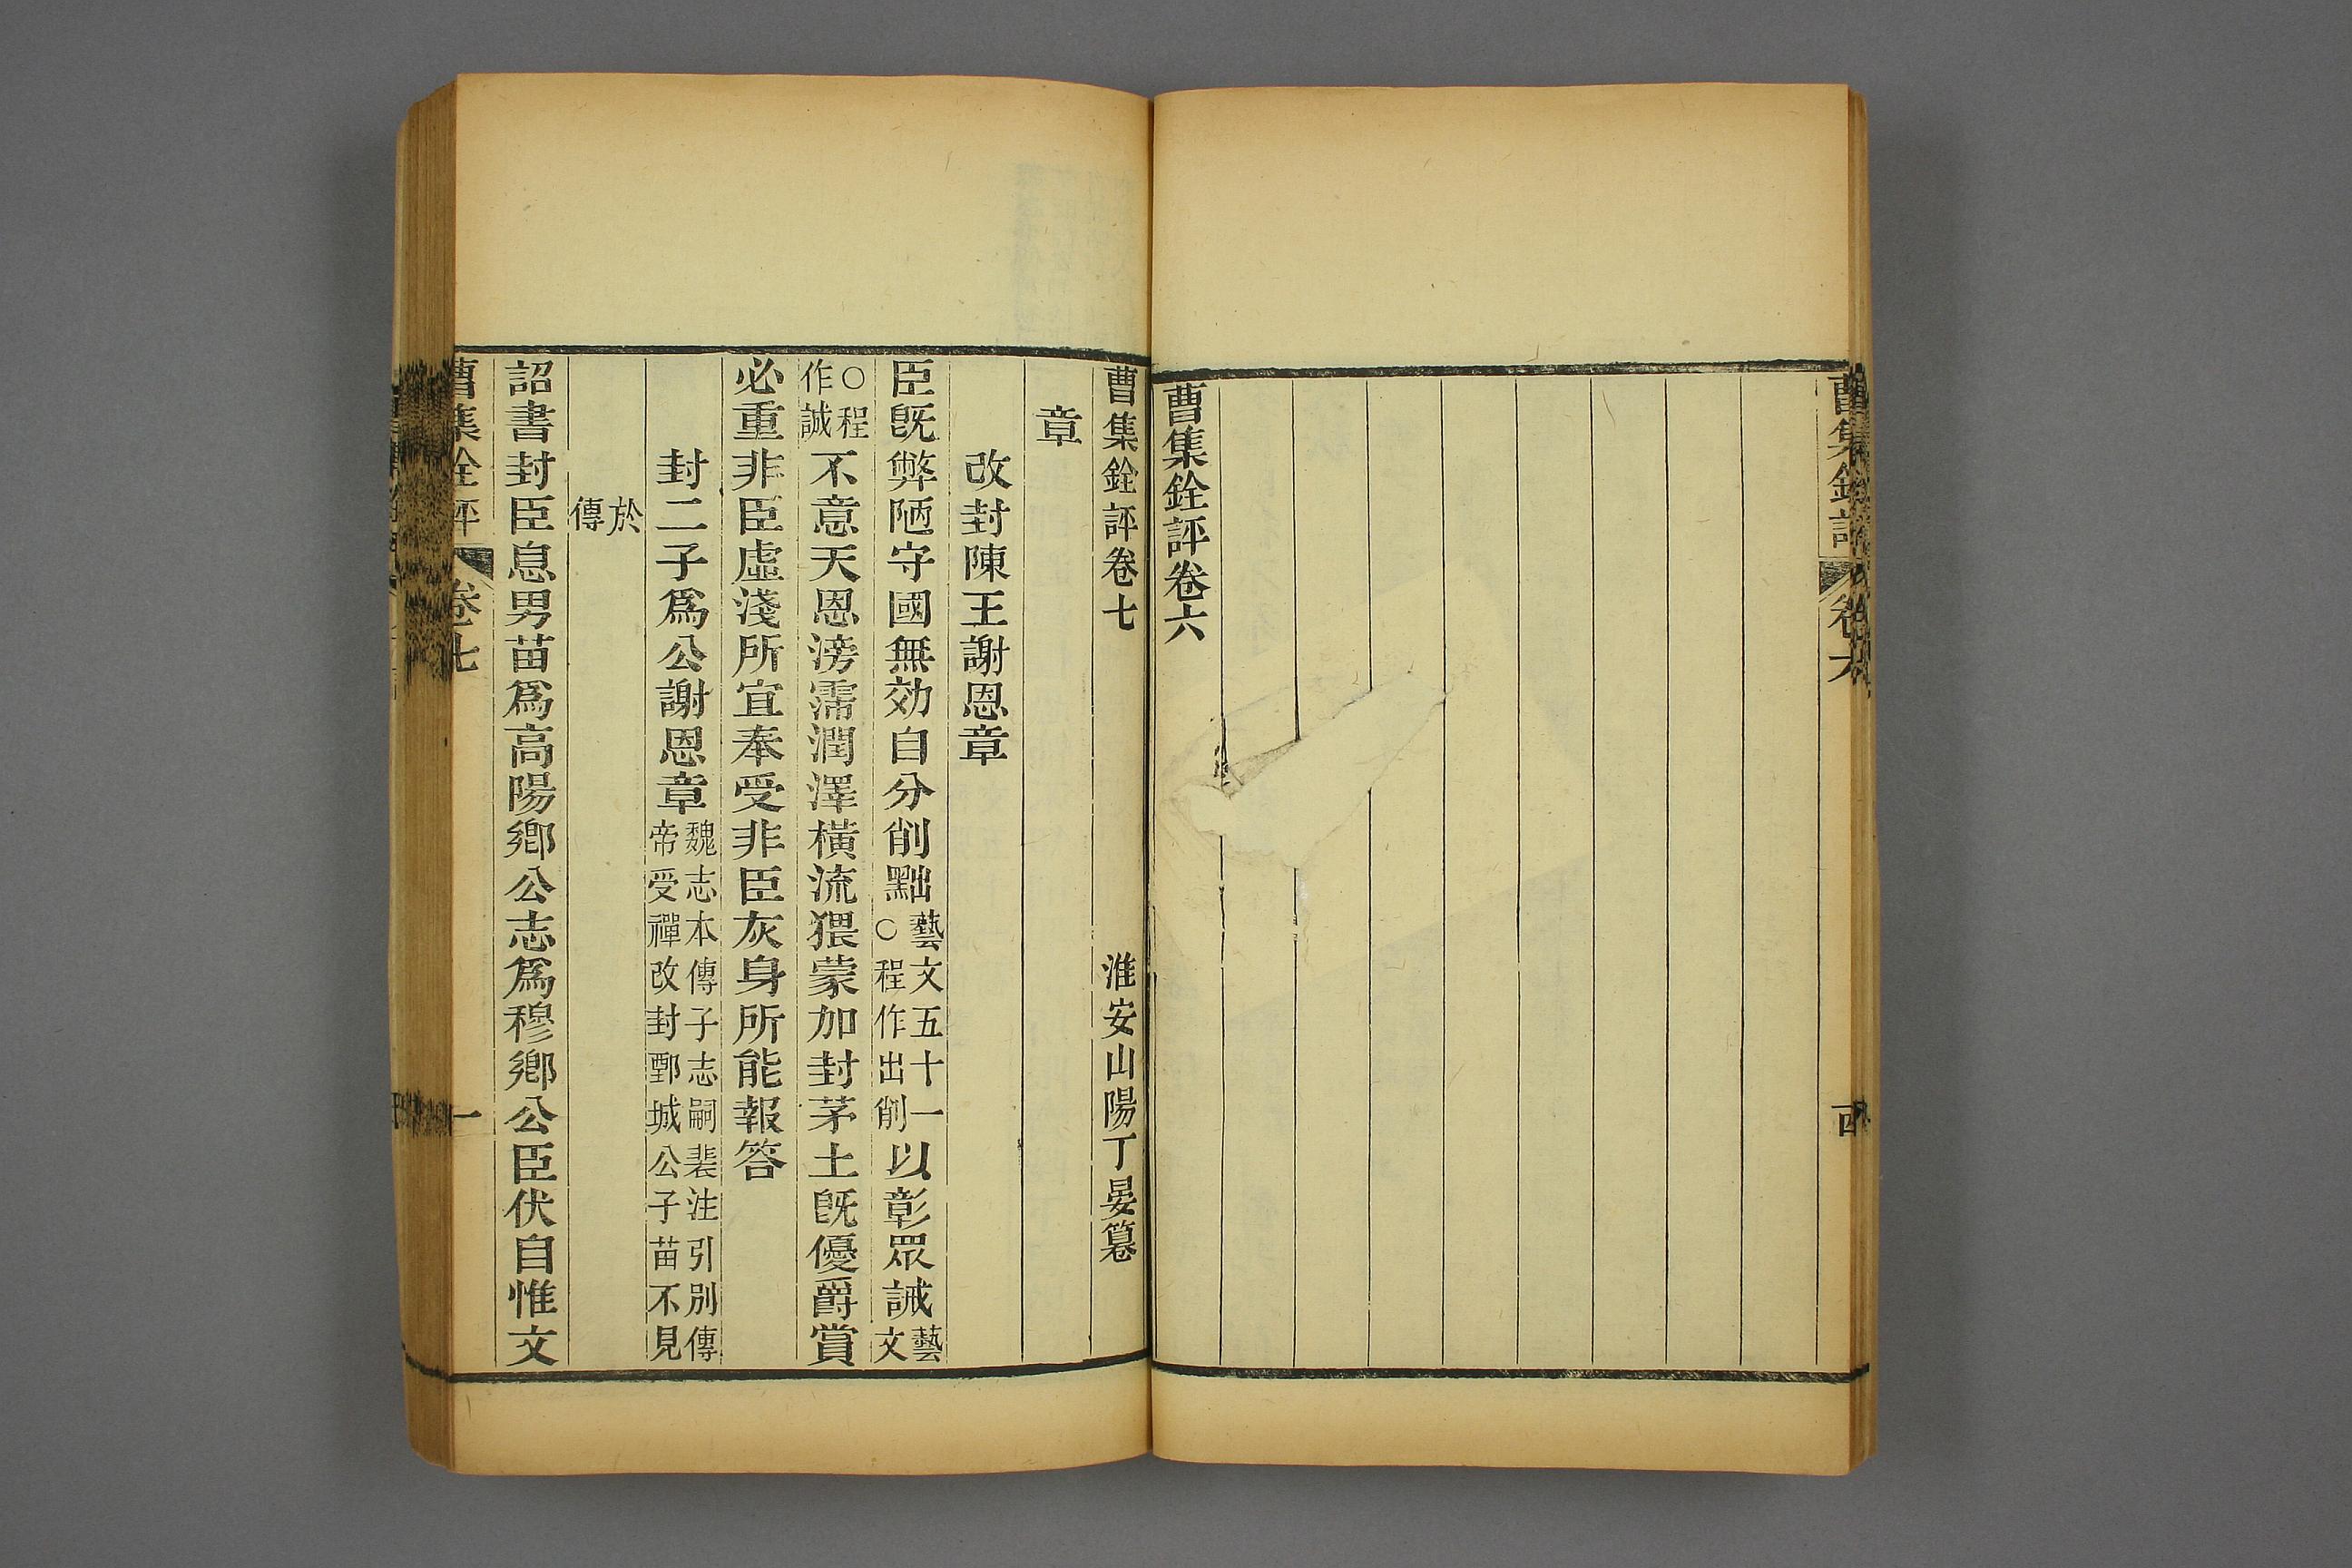 曹集銓評
卷六
曹集銓評卷六
曹集銓評卷七 淮安山陽丁晏纂
章
改封陳王謝恩章
臣旣弊陋守國無効自分削黜藝文五十一○程作出削以彰眾誡藝文
○程作誠不意天恩滂霈潤澤橫流猥蒙加封茅土旣優爵賞
必重非臣虛淺所宜奉受非臣灰身所能報答
封二子爲公謝恩章魏志本傳子志嗣裴注引別傳帝受禪改封鄄城公子苗不見
於傳
詔書封臣息男苗爲高陽鄉公志爲穆鄉公臣伏自惟文
曹集銓評 卷七 一